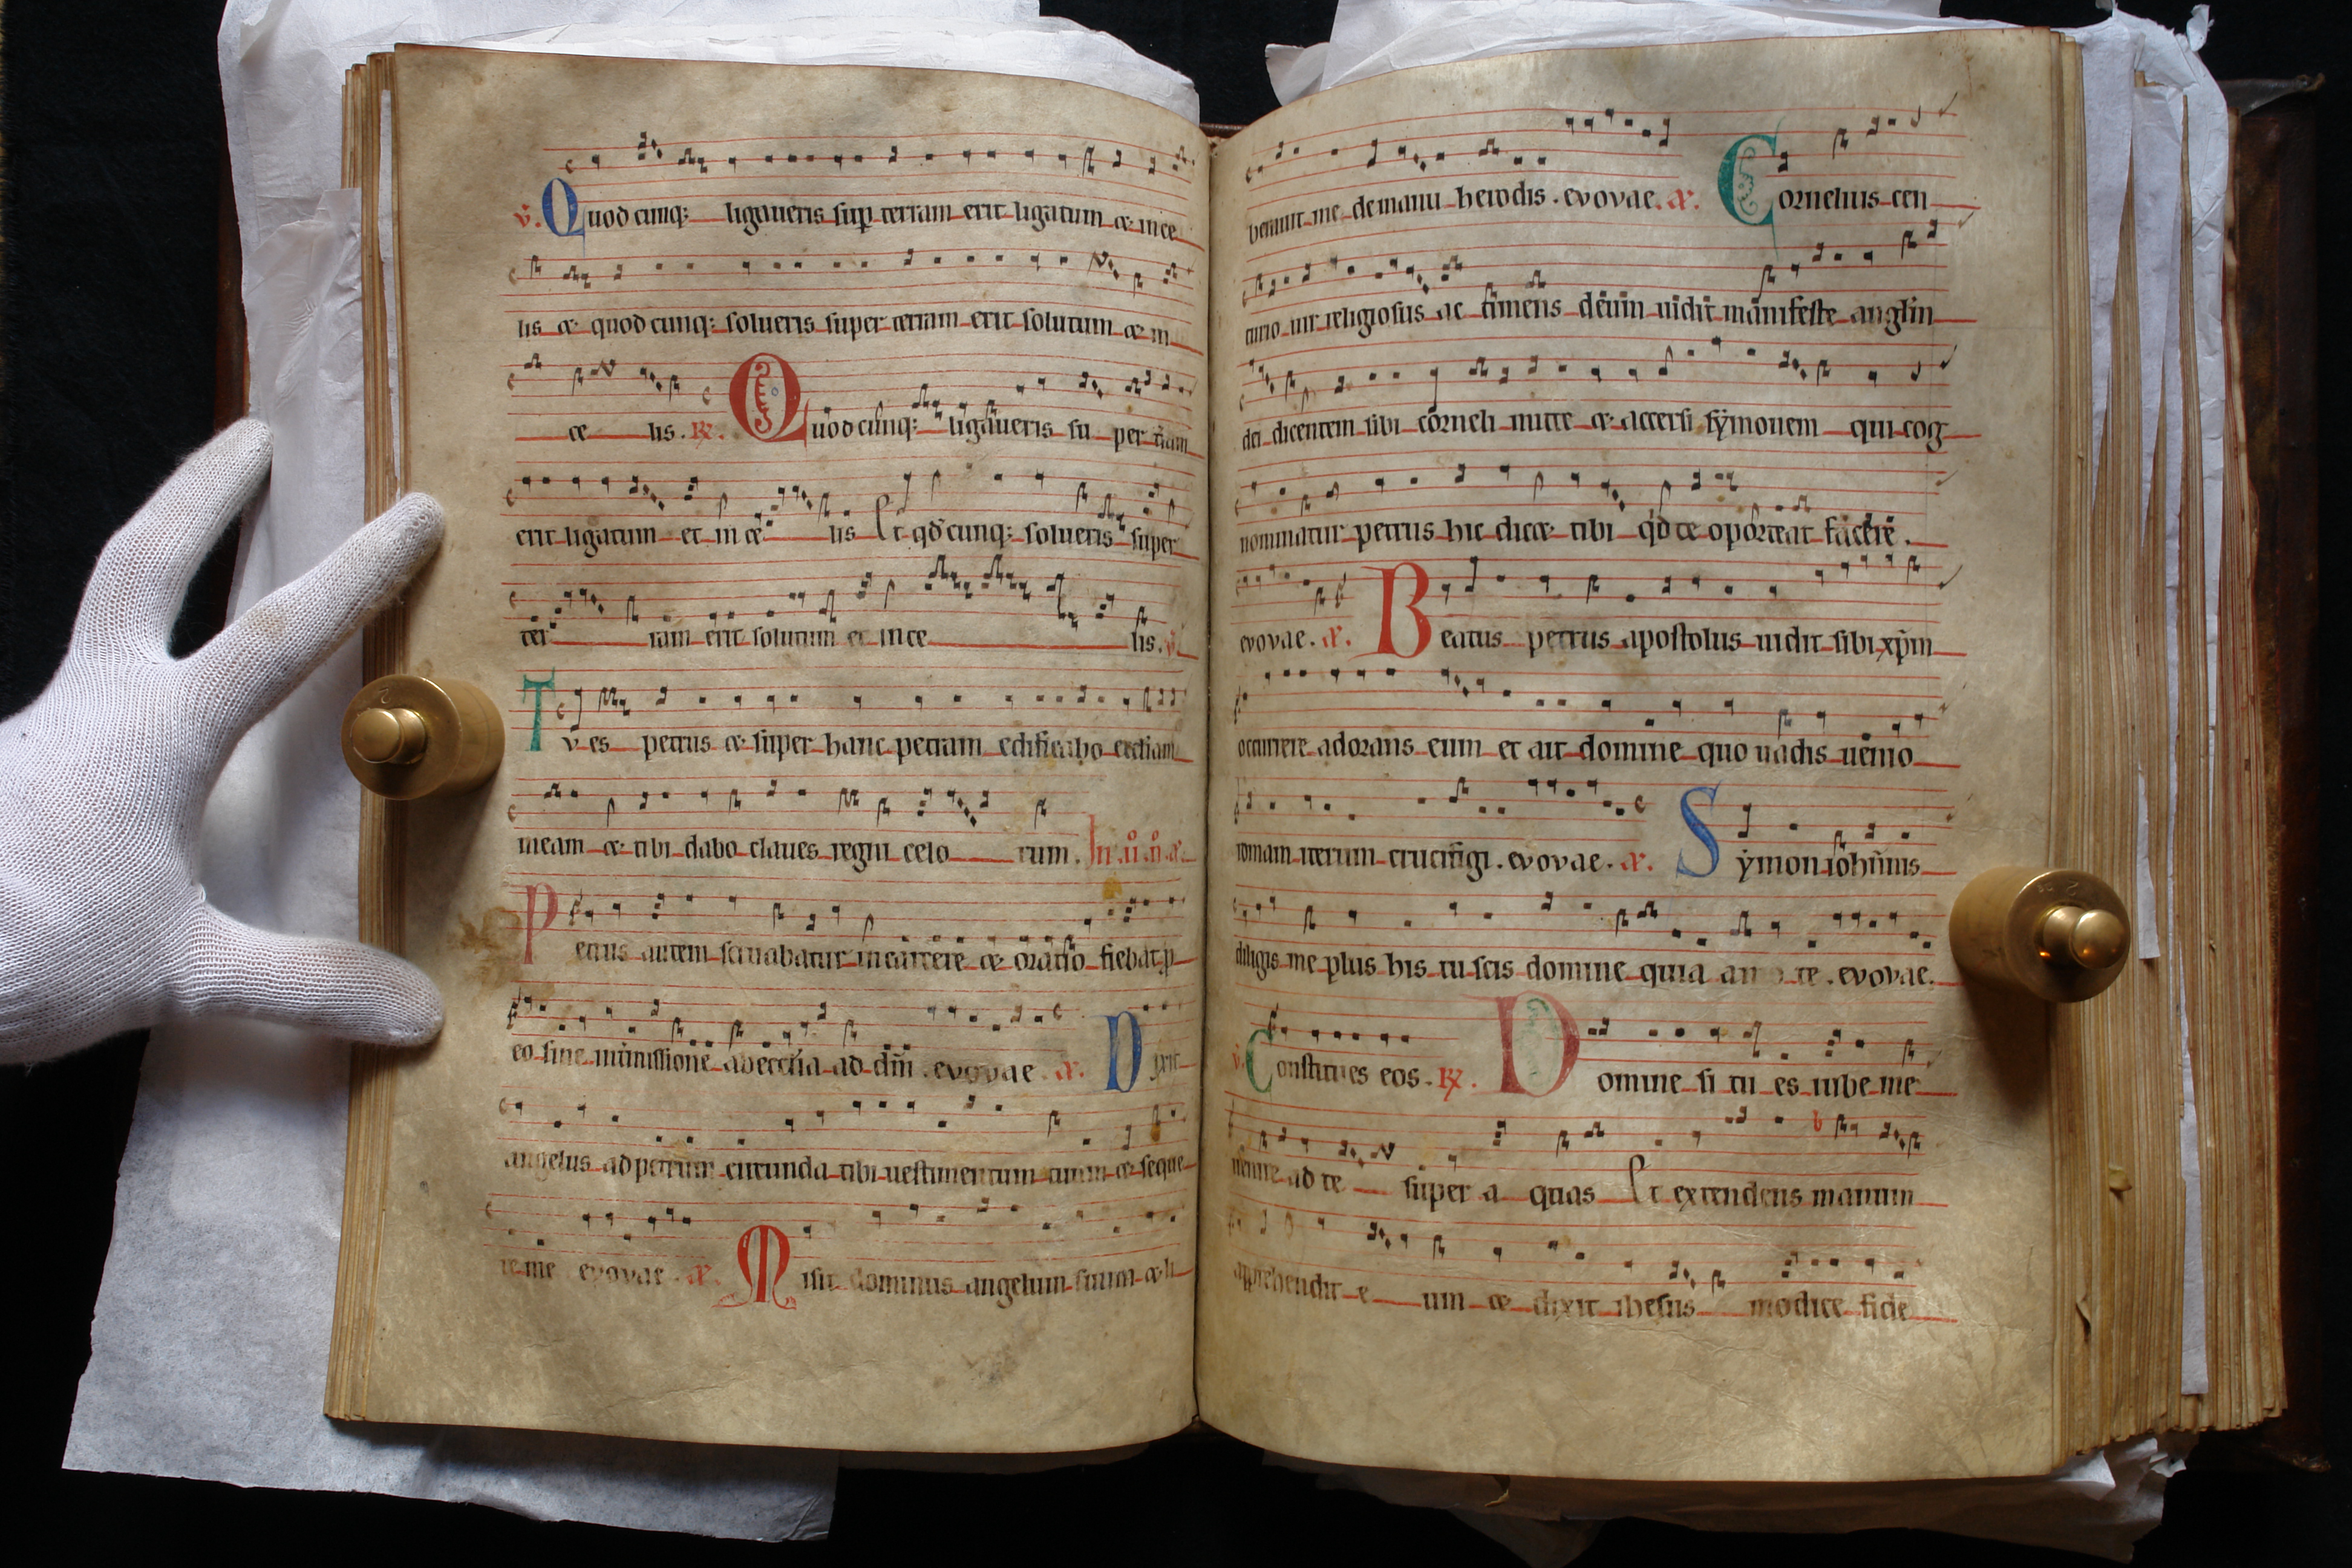 v. Quod cunq; ligaueris sup terram erit ligatum & in ce
lis & quod cunq; solueris super terram erit solutum & in
ce lis. R. Quod cunq; ligaueris su per tram
erit ligatum et in ce lis Et qd cunq; solueris super
ter ram erit solutum et in ce lis. v.
Tu es petrus & super hanc petram edificabo eccliam
meam & tibi dabo claues regni celo rum. In .ii. n. a.
Petrus autem seruabatur in carcere & oratio fiebat p
eo sine intmissione ab ecctia ad dnm . evovae . a. Dixit
angelus ad petrum circunda tibi uestimentum tuum & seque
re me evovae . a. Misit dominus angelum suum & li
berauit me de manu herodis . evovae . a. Cornelius cen
turio uir religiosus ac timens deum uidit manifeste anglm
dei dicentem sibi corneli mitte & accersi symonem qui cog
nominatur petrus hic dicet tibi qd te oporteat facere .
evovae . a. Beatus petrus apostolus uidit sibi xpm
occurrere adorans eum et ait domine quo uadis uenio
romam iterum crucifigi . evovae . a. Symon iohannis
diligis me plus his tu scis domine quia amo te . evovae.
v. Constitues eos . R. Domine si tu es iube me
uenire ad te super a quas Et extendens manum
apprehendit e um & dixit ihesus modice fide